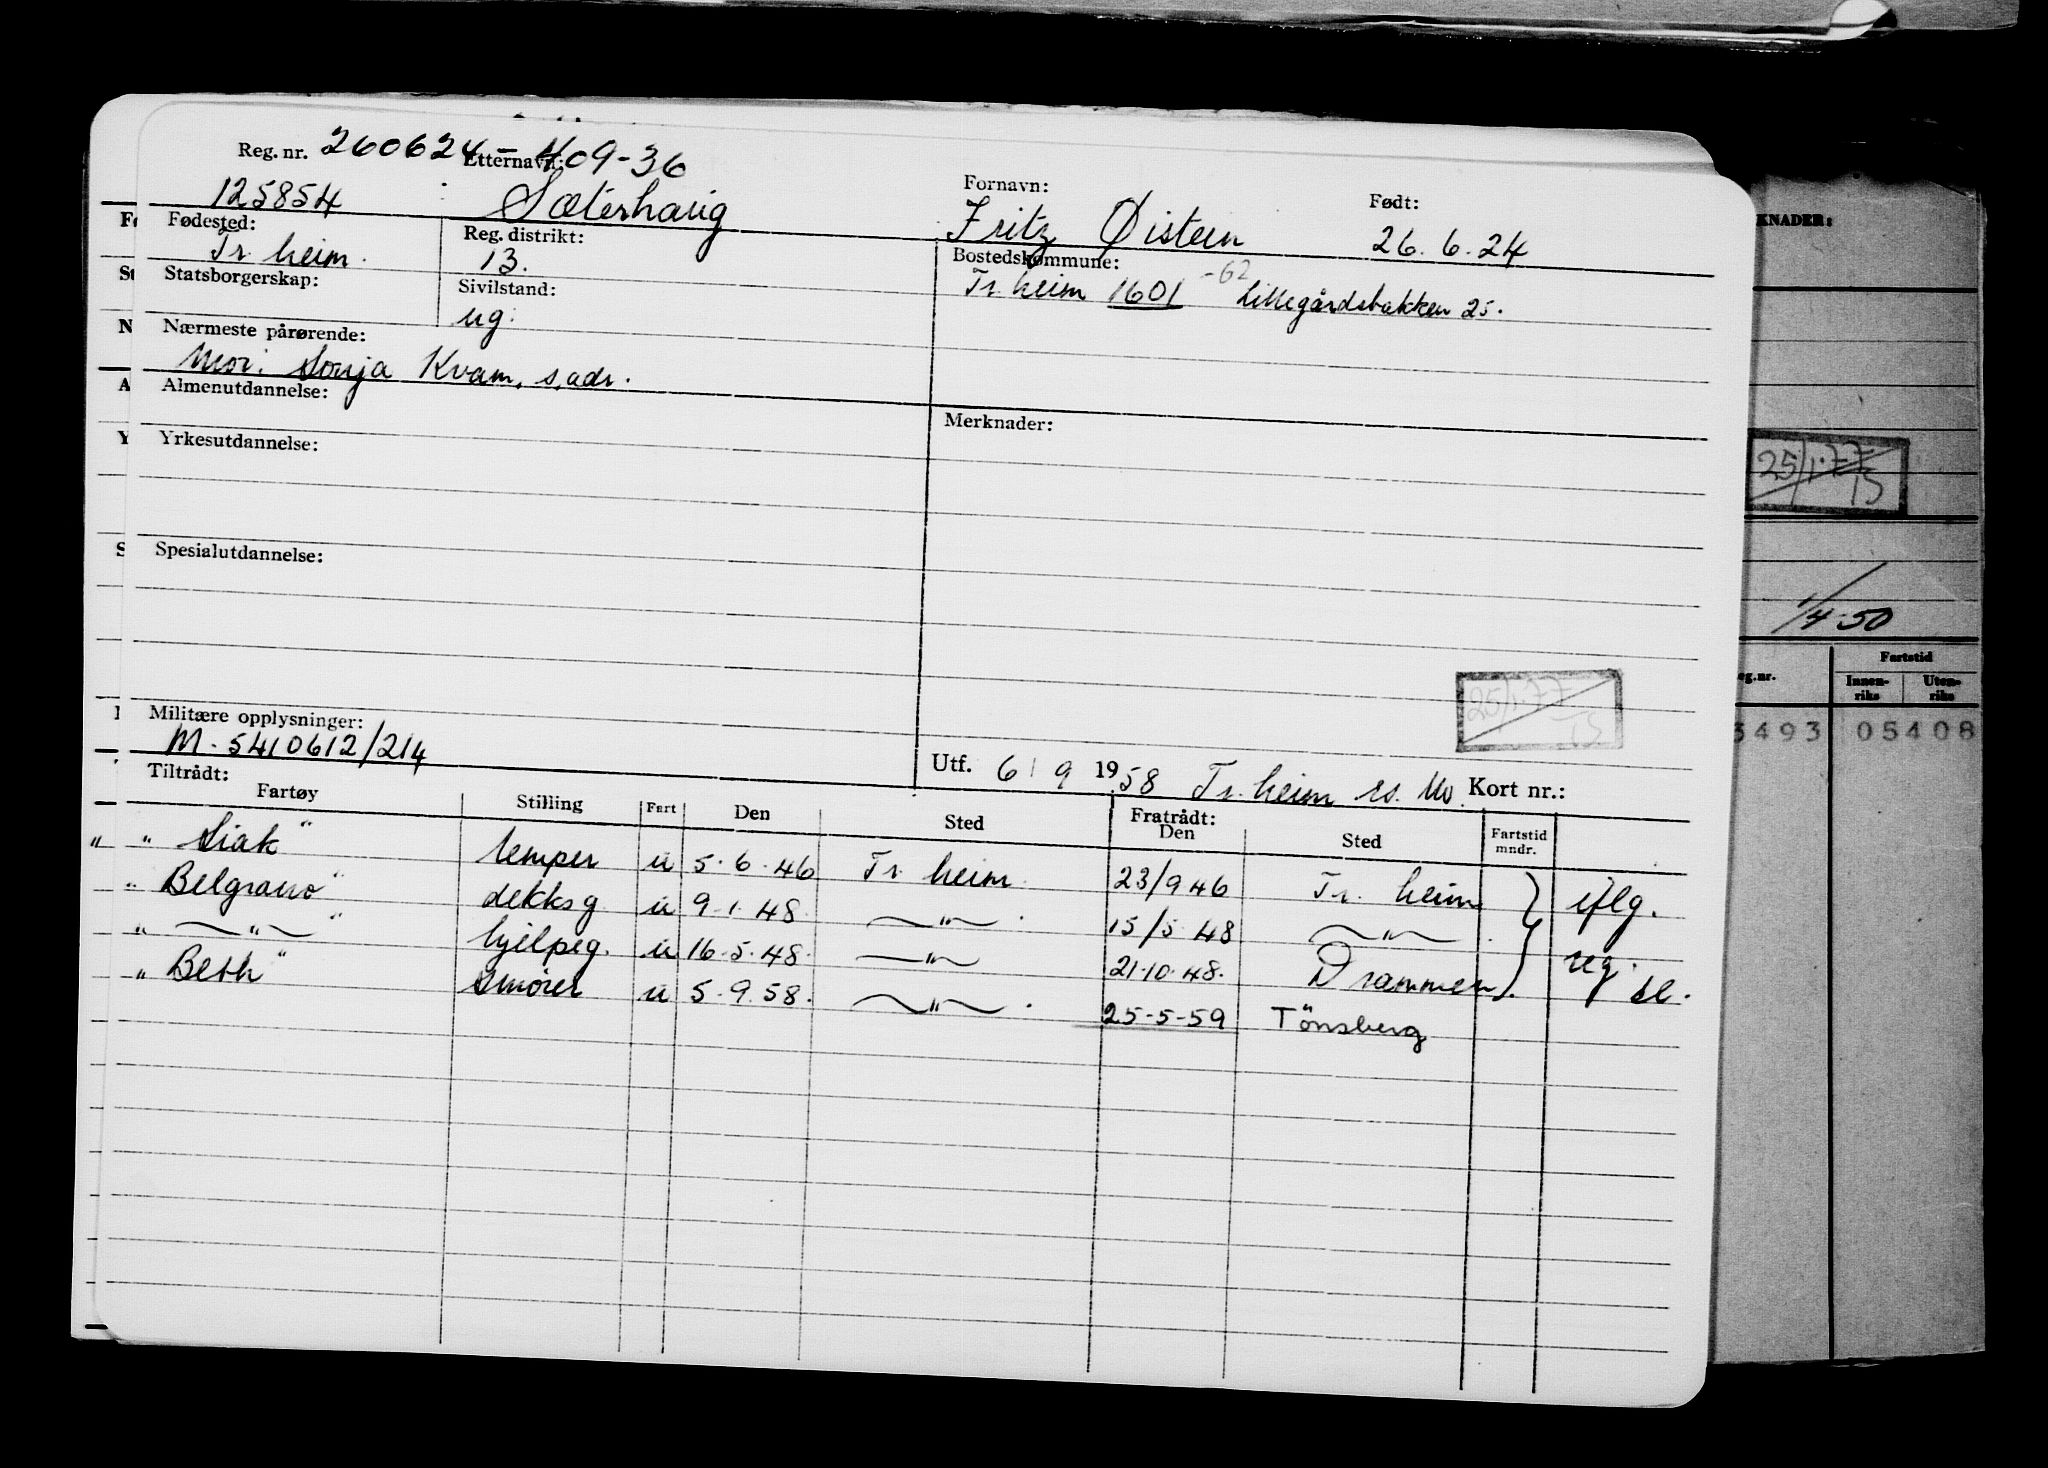 Reg. nr. 260624-409-36
125854
Etternavn: Sæterhaug
Fornavn: Fritz Øistein
Født: 26.6.24
Fødested: Tr.heim.
Reg. distrikt: 13.
Bostedskommune: Tr.heim 1601 -62 Lillegårdsbakken 25.
Statsborgerskap:
Sivilstand: ug.
Nærmeste pårørende:
Mor: Sonja Kvam, s.adr.
Almenutdannelse:
Merknader:
Yrkesutdannelse:
Spesialutdannelse:
25/1.77 15
Militære opplysninger:
M. 5410612/214
Utf. 6/9 1958 Tr.heim Kort nr.:
Tiltrådt:
Fartøy Stilling Fart Den Sted Fratrådt: Den Sted Fartstid mndr.
" "Siak" temper u 5.6.46 Tr.heim 23/9 46 Tr.heim iflg.
"Belgrano" dekksg u 9.1.48 —"— 15/5 48 —"—
"—"—" hjelpeg. u 16.5.48 —"— 21.10.48. Drammen reg. bl.
"Beth" smører u 5.9.58. —"— 25-5-59 Tönsberg
KNADER:
25/1.77 15
1/4-50
eg.nr. Fartstid
Innen-riks Uten-riks
3493 05408